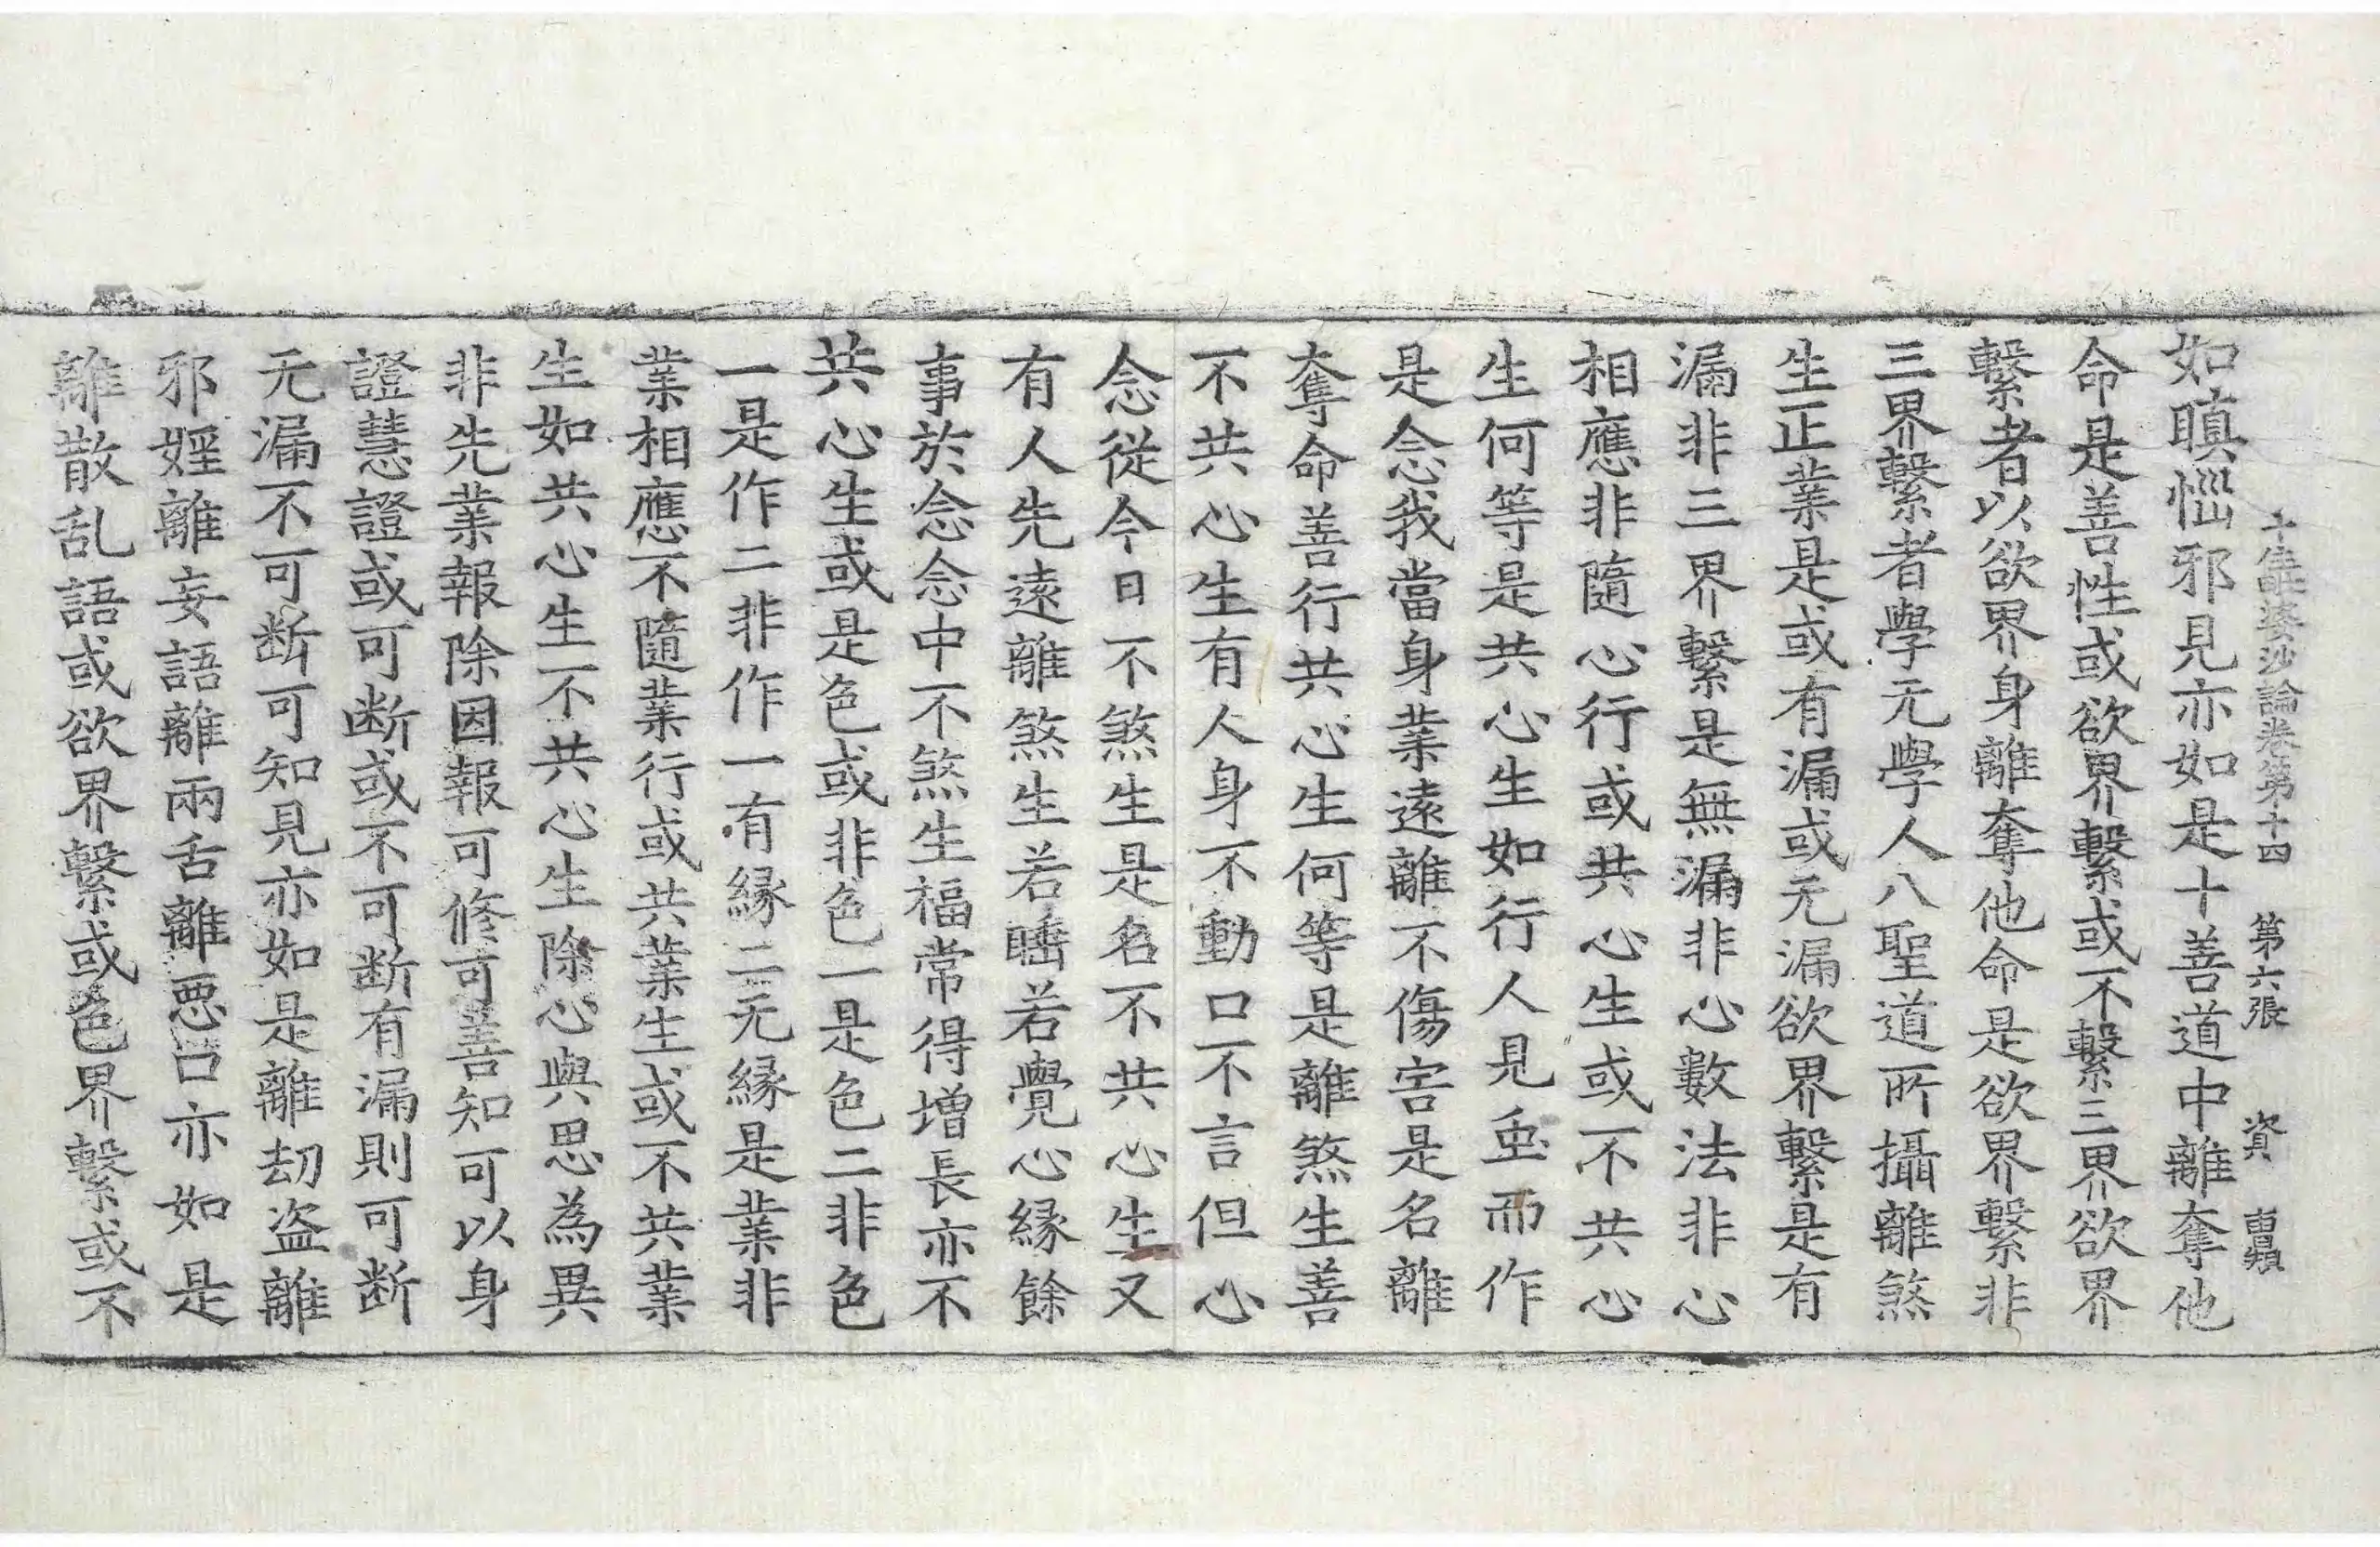 十住毗婆沙論卷第十四　第六張　資
如瞋惱邪見亦如是十善道中離奪他
命是善性或欲界繫或不繫三界欲界
繫者以欲界身離奪他命是欲界繫非
三界繫者學无學人八聖道所攝離煞
生正業是或有漏或无漏欲界繫是有
漏非三界繫是無漏非心數法非心
相應非隨心行或共心生或不共心
生何等是共心生如行人見虫而作
是念我當身業遠離不傷害是名離
奪命善行共心生何等是離煞生善
不共心生有人身不動口不言但心
念從今日不煞生是名不共心生又
有人先遠離煞生若睡若覺心緣餘
事於念念中不煞生福常得增長亦不
共心生或是色或非色一是色二非色
一是作二非作一有緣二无緣是業非
業相應不隨業行或共業生或不共業
生如共心生不共心生除心與思為異
非先業報除因報可修可善知可以身
證慧證或可断或不可断有漏則可断
无漏不可断可知見亦如是離劫盜離
邪婬離妄語離兩舌離惡口亦如是
離散乱語或欲界繫或色界繫或不